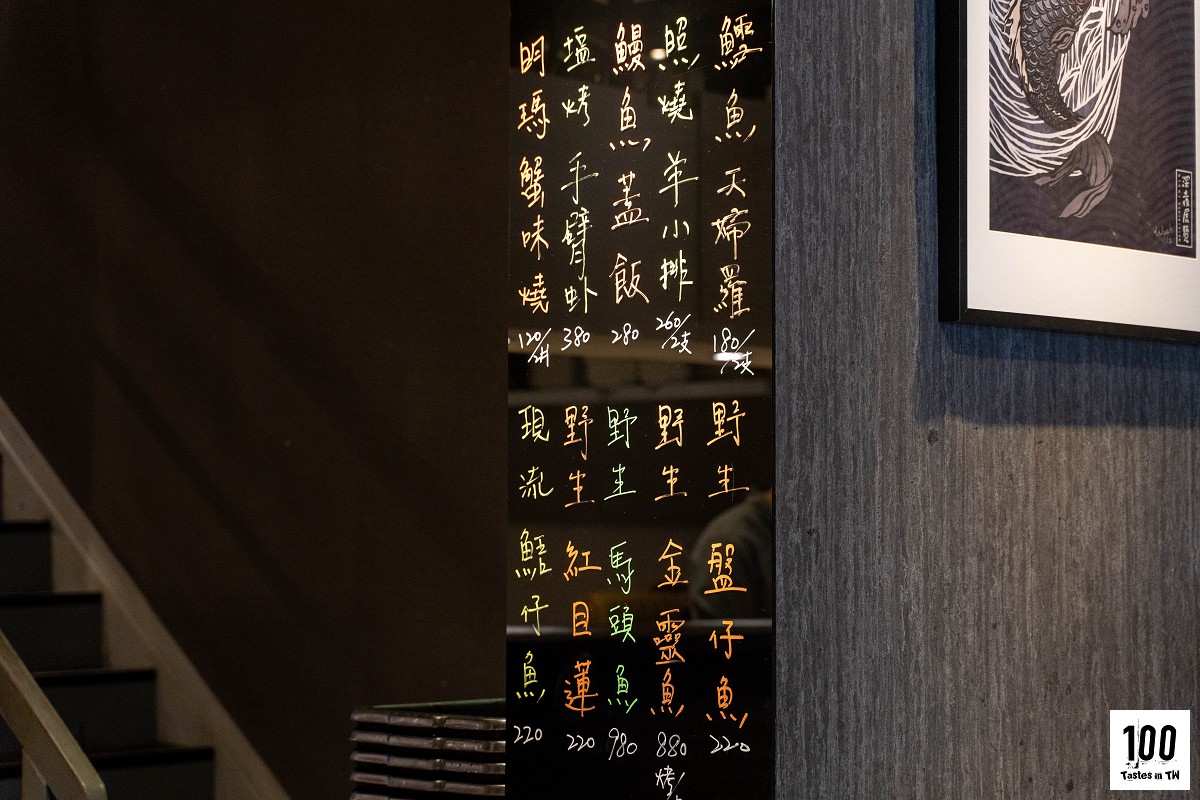 鱈魚天婦羅
180/2支
照燒羊小排
260/2支
鰻魚蓋飯
280
塩烤手臂虾
380
明瑪蟹味燒
120/2片
野生 盤仔魚
220
野生 金靈魚
880
烤/
野生 馬頭魚
980
野生 紅目蓮
220
現流 鮚仔魚
220
100
Tastes in TW